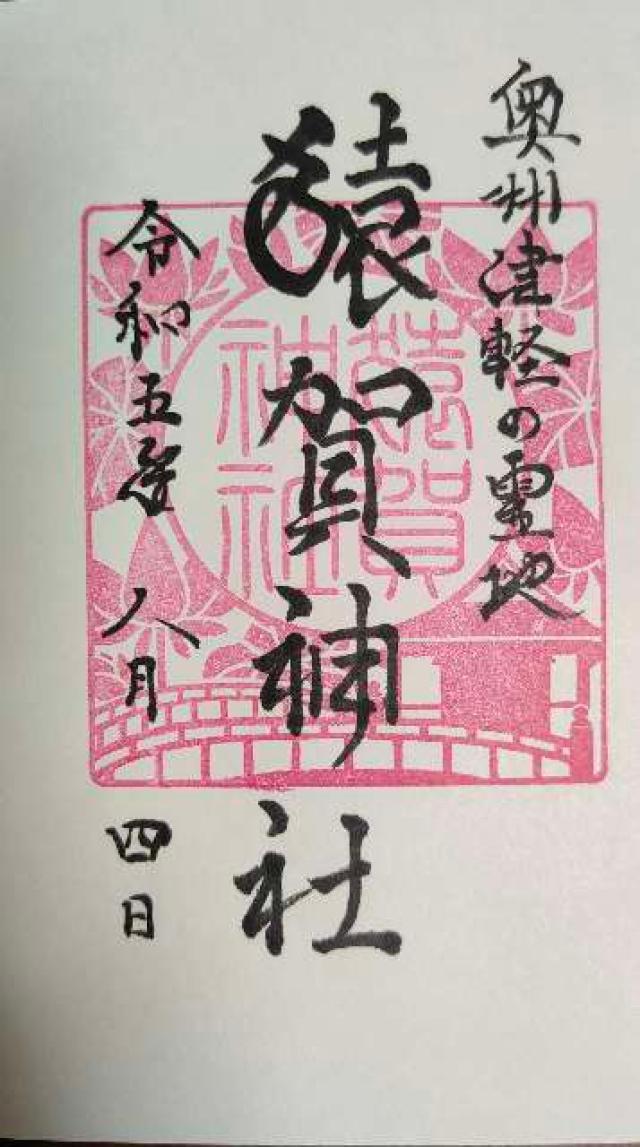 奥州津軽の霊地
猿賀神社
令和五年 八月 四日
猿賀
神社